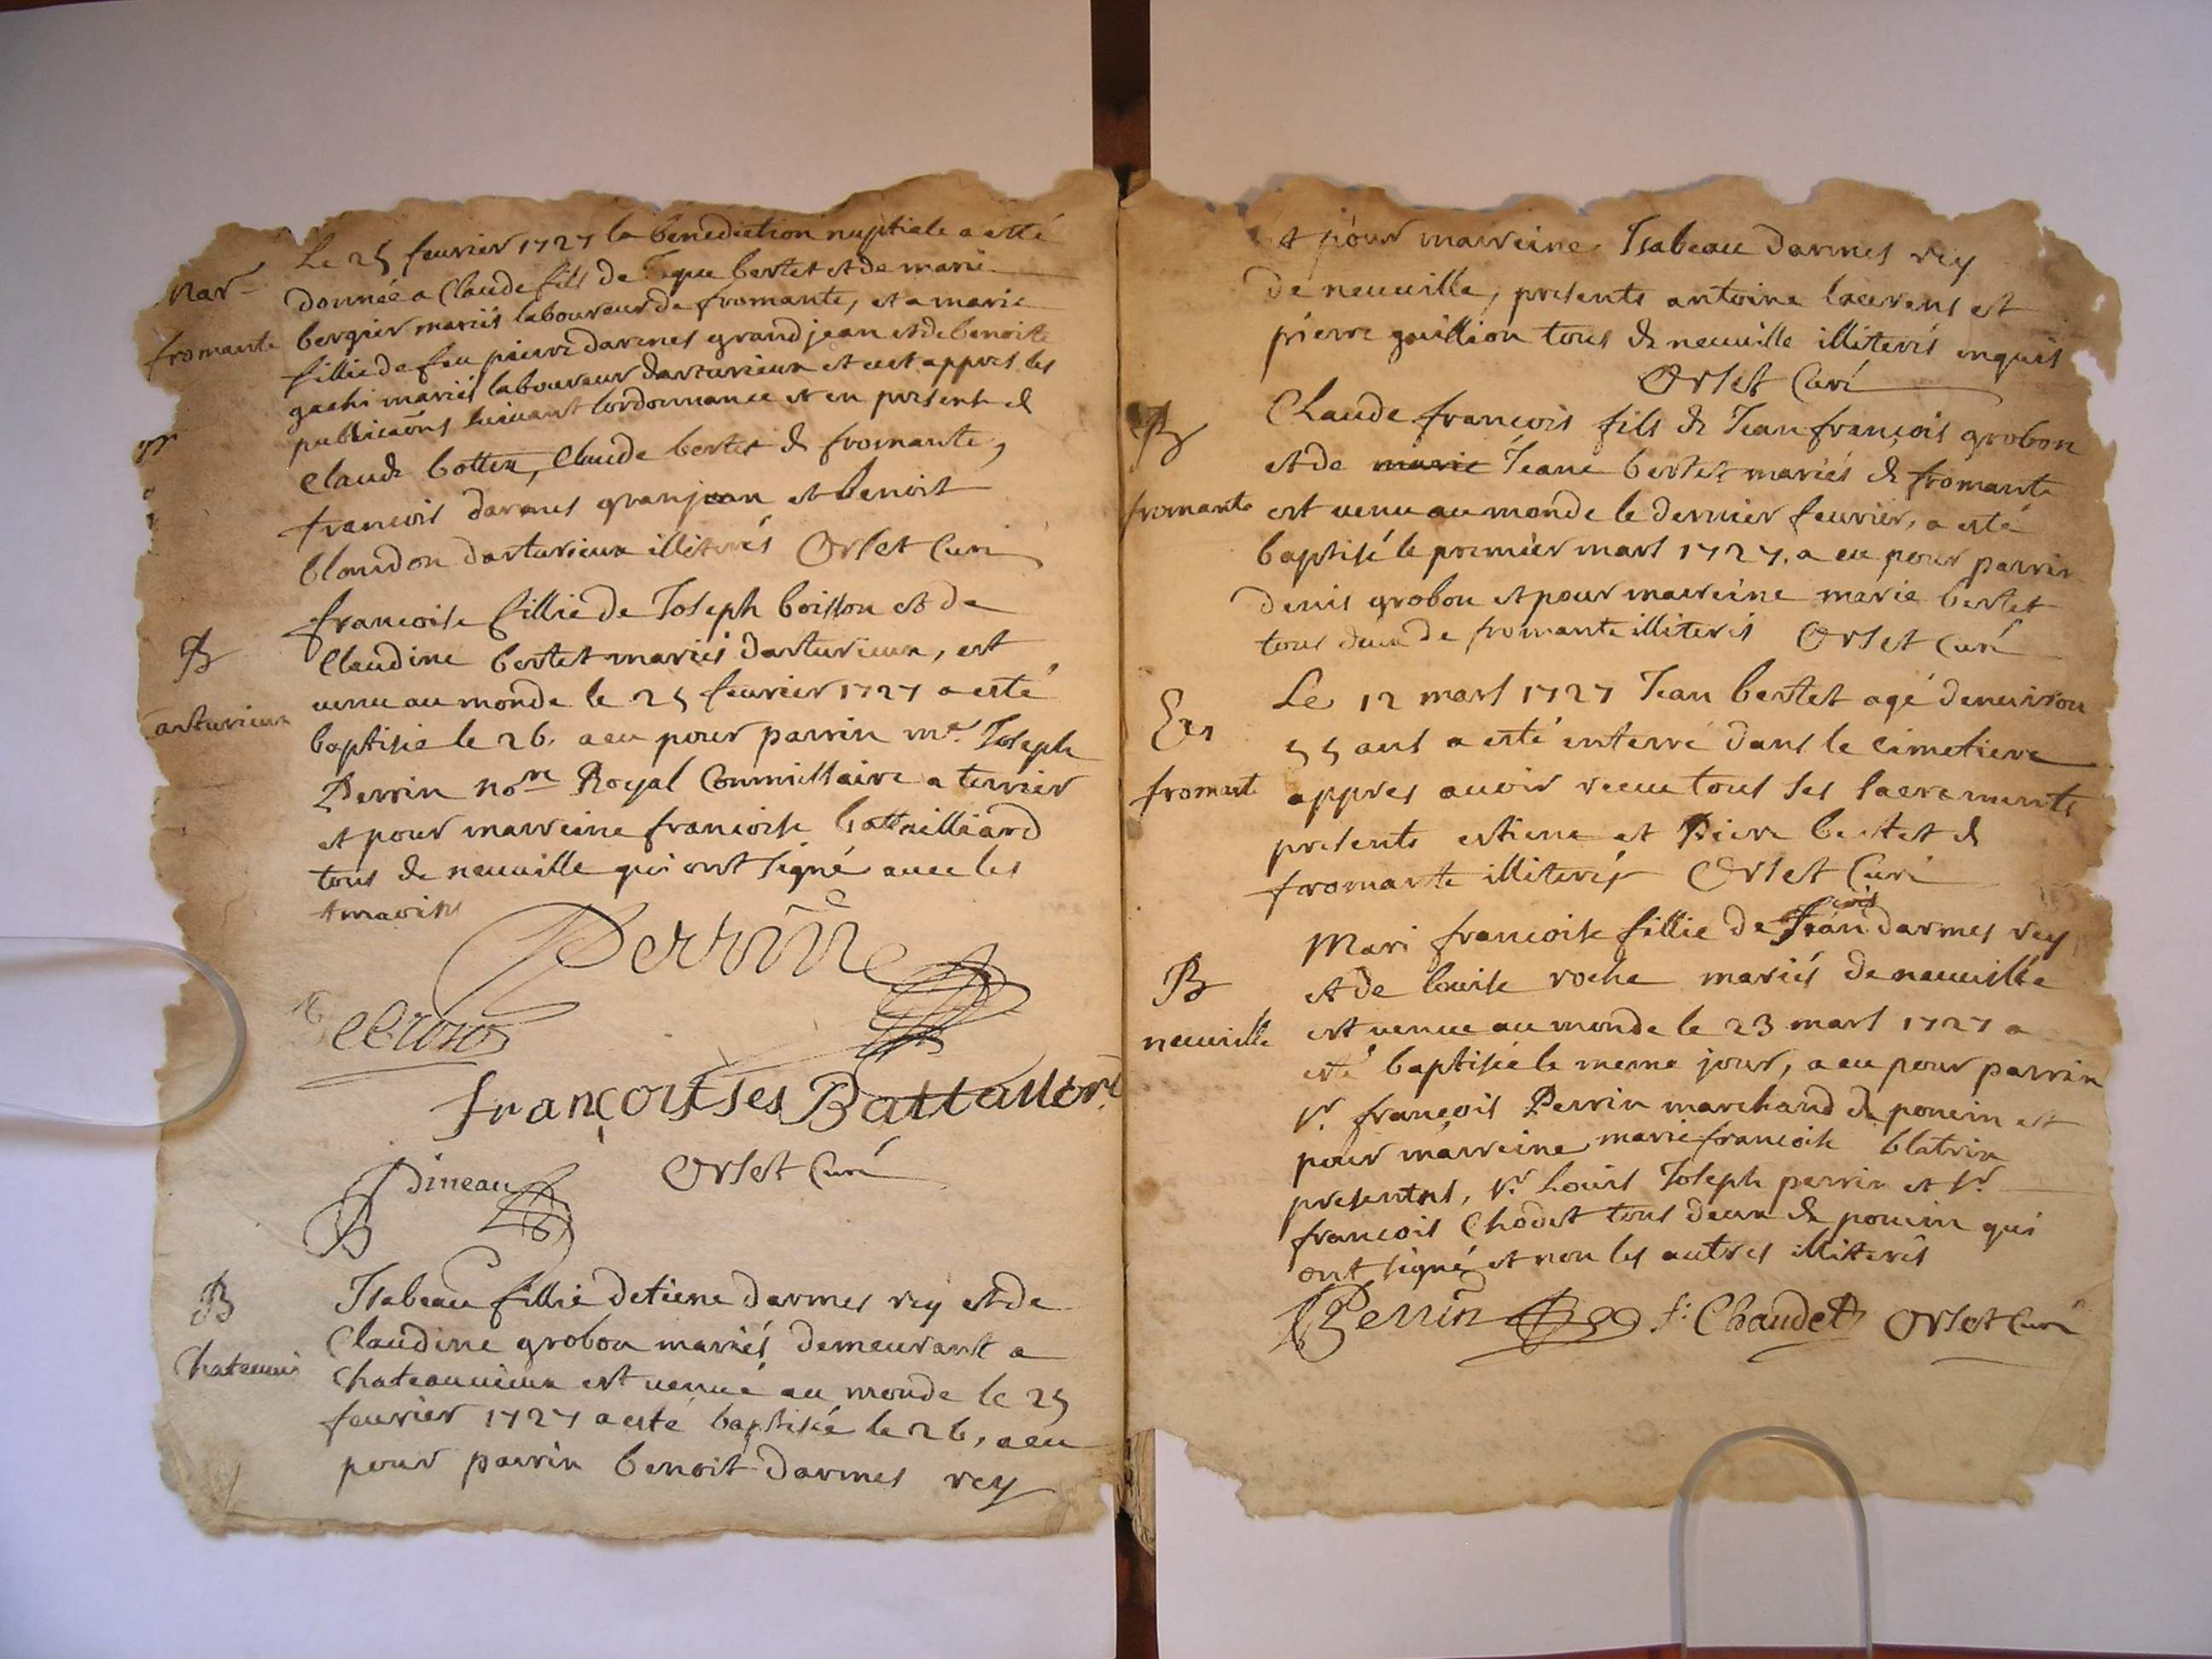 Le 25 feurier 1727 la benediction nuptiale a esté
Mar
donnée a Claude fils de bertet et de marie
fromante
bergier mariés laboureur de fromante, et a marie
fillie de feu pierre darmes grandjean et de benoite
gachi mariés laboureur darturieux et cest appres les
publicaõns suiuant lordonnance et en presente de
Claude botten, Claude bertet de fromante,
francois darmes granjean et benoist
blondon darturieux illiterés Orset Curé
B
arturieux
francoise fillie de Joseph boisson et de
Claudine bertet mariés darturieux, est
uenu au monde le 25 feurier 1727 a esté
baptisée le 26. a eu pour parrin me. Joseph
Perrin nore Royal Commissaire a terrier
et pour marreine francoise battailliard
tous de neuuille qui ont signé auec les
Perrin
françoisses Battallord
Pineau
Orset Curé
B
Chateauui
Isabeau fillie detiene darmes rey et de
Claudine grobon mariés demeurant a
Chateauuieux est uenue au monde le 25
feurier 1727 a esté baptisée le 26, a eu
pour parrin benoit darmes rey
et pour marreine Isabeau darmes rey
de neuuille, presents antoine laurens et
pierre gouillion tous de neuuille illiterés enquis
Orset Curé
B
fromante
Claude francois fils de Jean francois grobon
et de marie Jeane bertet mariés de fromante
est uenu au monde le dernier feurier, a esté
baptisé le premier mars 1727, a eu pour parrin
denis grobon et pour marreine marie bertet
tous deux de fromante illiterés Orset Curé
Ext
fromant
Le 12 mars 1727 Jean bertet agé denuiron
55 ans a esté enterré dans le cimetiere
appres auoir receu tous ses sacrements
presents estiene et Pierre bertet de
fromante illiterés Orset Curé
B
neuuille
Mari francoise fillie de francois darmes rey
et de louise roche mariés de neuuille
est uenue au monde le 23 mars 1727 a
esté baptisée le meme jour, a eu pour parrin
sr. francois Perrin marchand de poncin et
pour marreine marie francoise blatrin
presents, sr. Louis Joseph perrin et sr.
francois Chodet tous deux de poncin qui
ont signé et non les autres illiterés
Perrin f: Chaudet Orset Curé